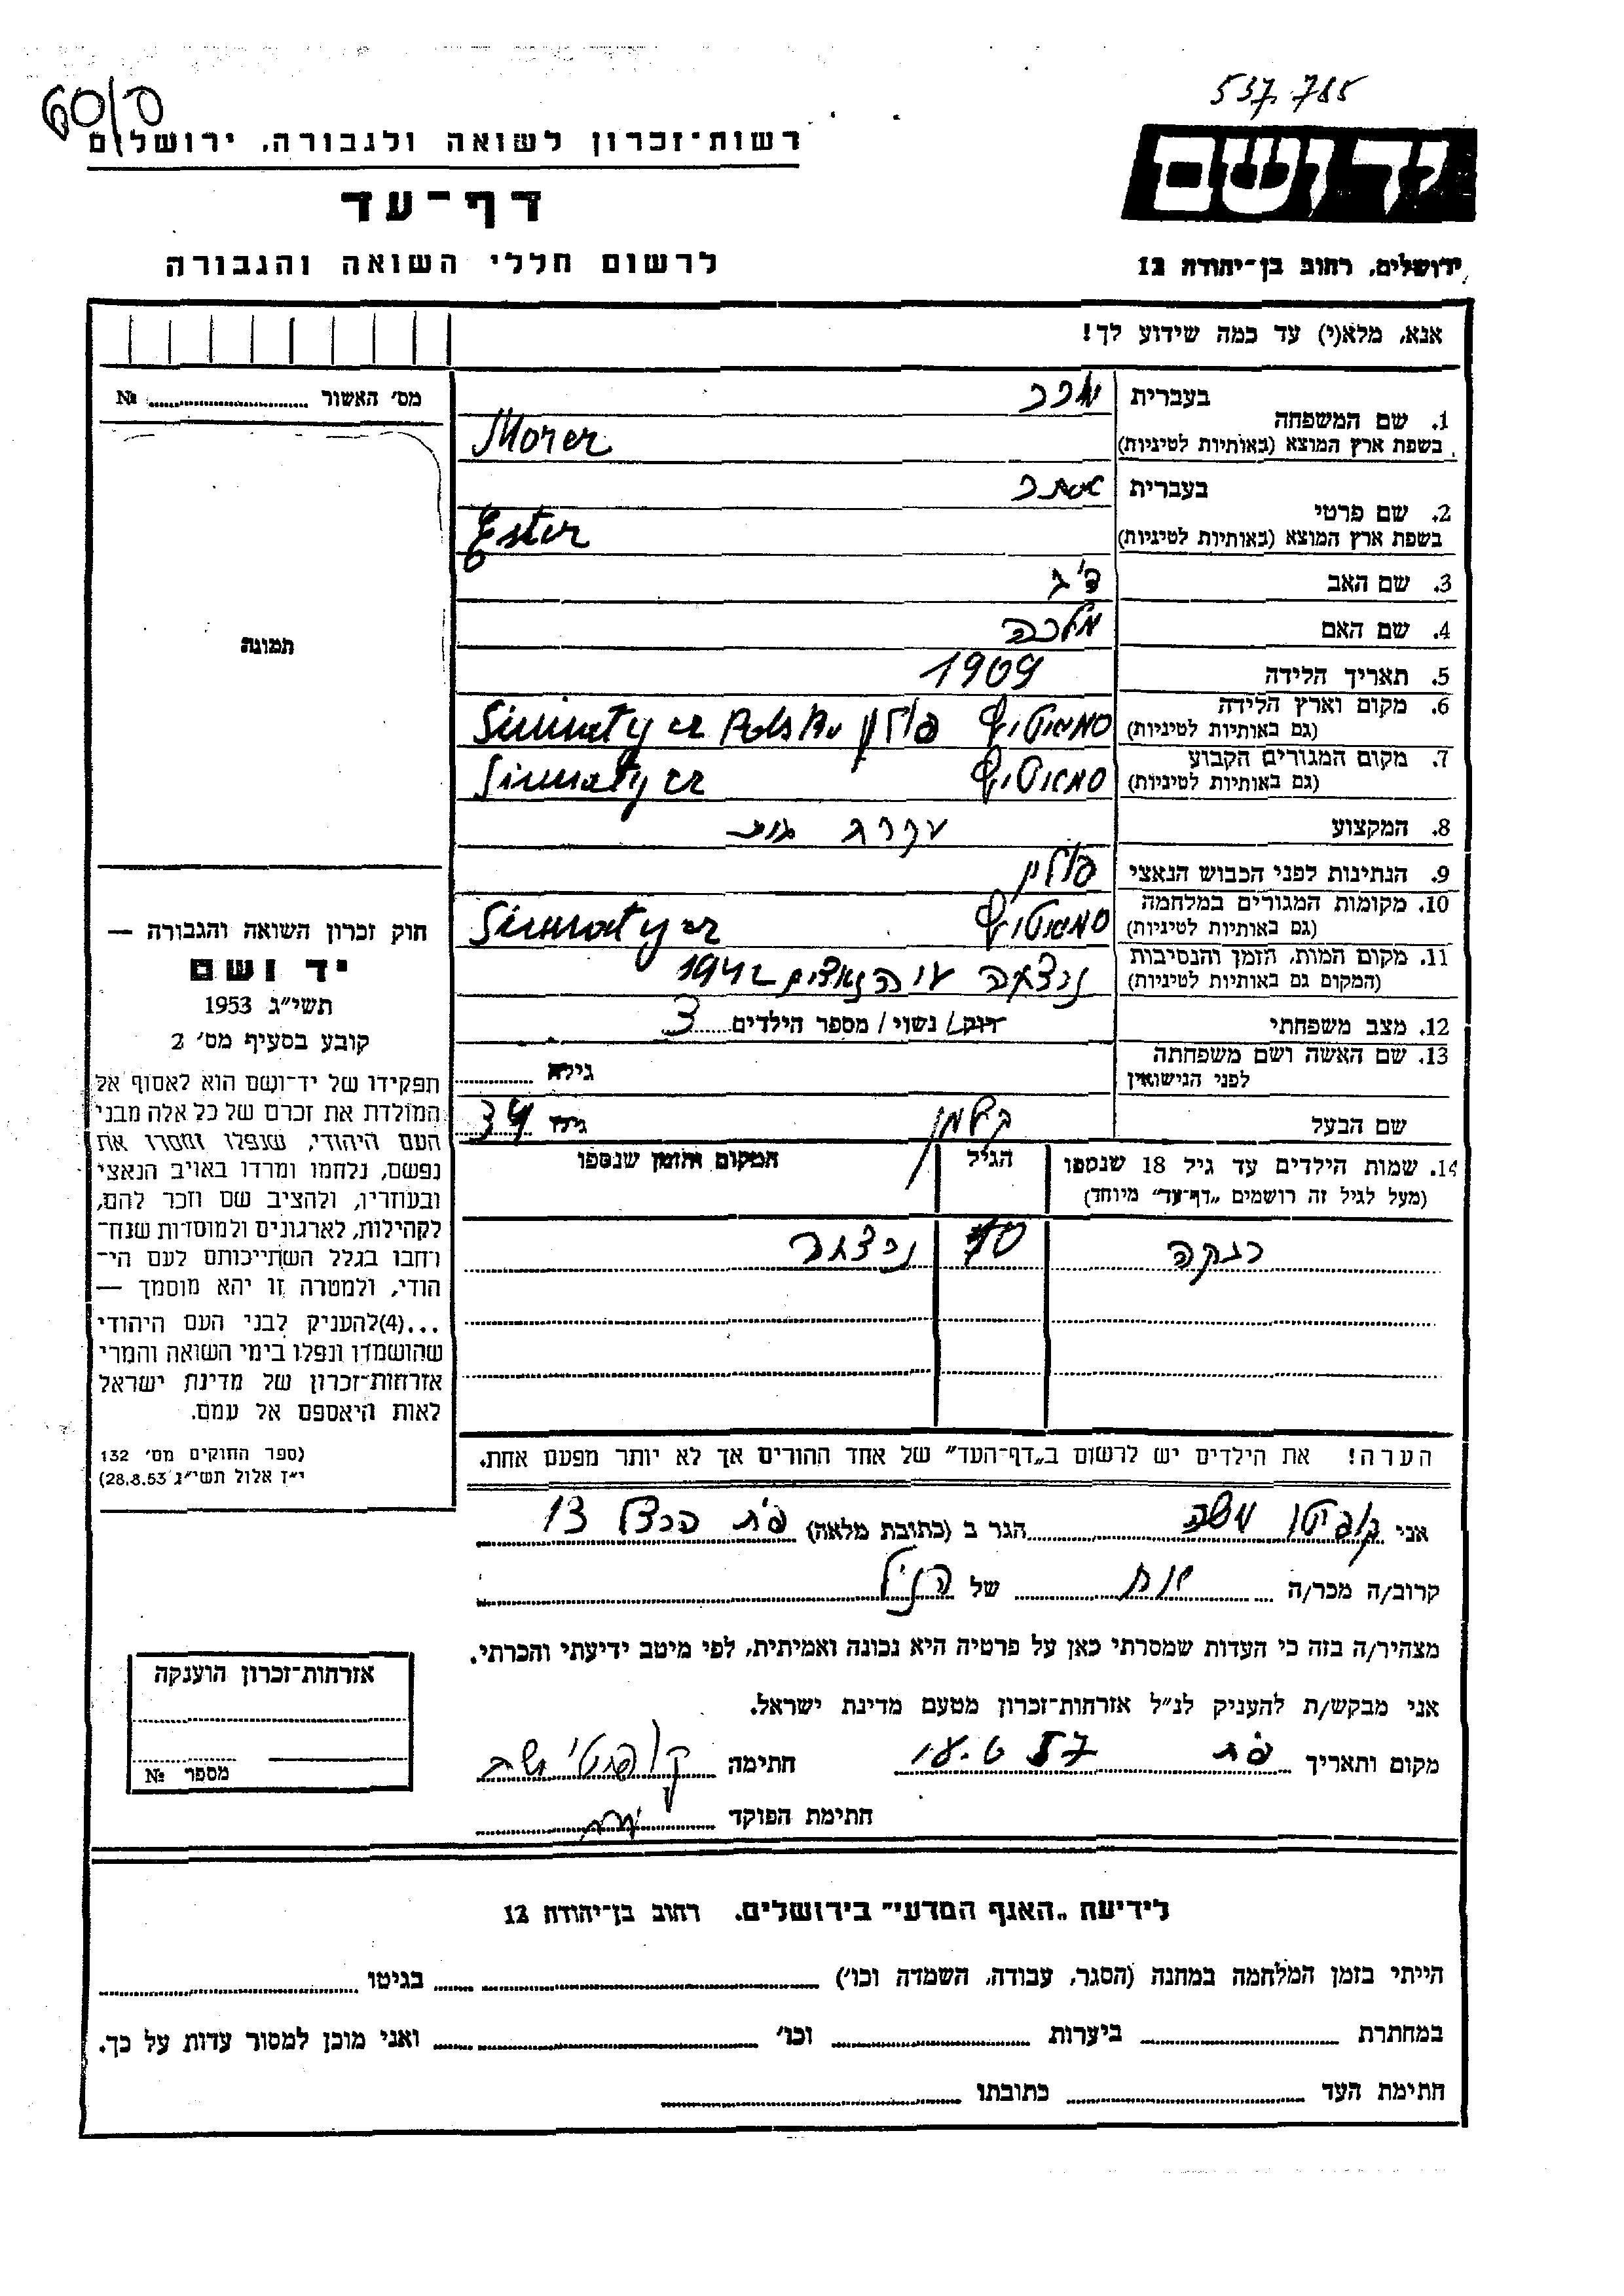 537.785
60/0
רשות־זכרון לשואה ולגבורה, ירושלים
דף־עד
לרשום חללי השואה והגבורה
יד ושם
ירושלים, רחוב בן־יהודה 12
אנא, מלא(י) עד כמה שידוע לך!
מס' האשור № 
תמונה
חוק זכרון השואה והגבורה —
יד ושם
תשי״ג 1953
קובע בסעיף מס' 2
תפקידו של יד־ושם הוא לאסוף אל
המולדת את זכרם של כל אלה מבני
העם היהודי, שנפלו ומסרו את
נפשם, נלחמו ומרדו באויב הנאצי
ובעוזריו, ולהציב שם וזכר להם,
לקהילות, לארגונים ולמוסדות שנח־
רחבו בגלל השתייכותם לעם הי־
הודי, ולמטרה זו יהא מוסמך —
...(4)להעניק לבני העם היהודי
שהושמדו ונפלו בימי השואה והמרי
אזרחות־זכרון של מדינת ישראל
לאות היאספם אל עמם.
(ספר החוקים מס' 132
י״ז אלול תשי״ג 28.8.53)
1. שם המשפחה
בעברית
בשפת ארץ המוצא (באותיות לטיניות) Morer
2. שם פרטי
בעברית אסתר
בשפת ארץ המוצא (באותיות לטיניות) Ester
3. שם האב
4. שם האם מלכה
5. תאריך הלידה 1909
6. מקום וארץ הלידה
(גם באותיות לטיניות) פולין
7. מקום המגורים הקבוע
(גם באותיות לטיניות)
8. המקצוע עקרת בית
9. הנתינות לפני הכבוש הנאצי פולין
10. מקומות המגורים במלחמה
(גם באותיות לטיניות)
11. מקום המות, הזמן והנסיבות
(המקום גם באותיות לטיניות) הנאצים 1942
12. מצב משפחתי רווק/ נשוי/ מספר הילדים 3
13. שם האשה ושם משפחתה
לפני הנישואין גילה
שם הבעל קלמן גילו 34
14. שמות הילדים עד גיל 18 שנספו
(מעל לגיל זה רושמים „דף־עד״ מיוחד)
הגיל
המקום והזמן שנספו
רבקה 10
הערה! את הילדים יש לרשום ב„דף־העד״ של אחד ההורים אך לא יותר מפעם אחת.
אני משה הגר ב (כתובת מלאה) פ״ת הרצל 13
קרוב/ה מכר/ה אח של הנ״ל
מצהיר/ה בזה כי העדות שמסרתי כאן על פרטיה היא נכונה ואמיתית, לפי מיטב ידיעתי והכרתי.
אני מבקש/ת להעניק לנ״ל אזרחות־זכרון מטעם מדינת ישראל.
מקום ותאריך פ״ת חתימה
חתימת הפוקד
אזרחות־זכרון הוענקה
מספר №
לידיעת „האגף המדעי״ בירושלים. רחוב בן־יהודה 12
הייתי בזמן המלחמה במחנה (הסגר, עבודה, השמדה וכו') בגיטו
במחתרת ביערות וכו' ואני מוכן למסור עדות על כך.
חתימת העד כתובתו